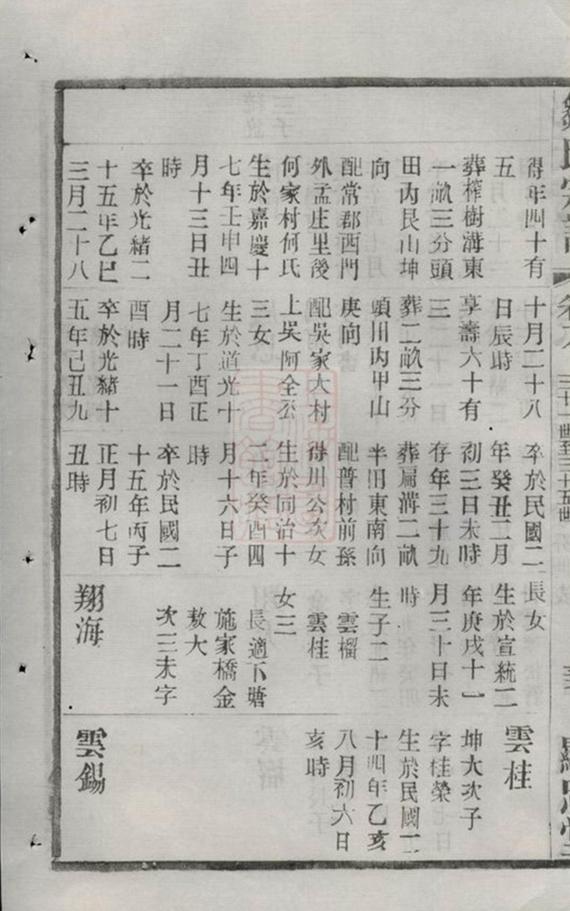 得年四十有
五
葬榨樹溝東
一畝三分頭
田丙艮山坤
向
配常郡西門
外孟庄里後
何家村何氏
生於嘉慶十
七年壬申四
月十三日丑
時
卒於光緒二
十五年乙巳
三月二十八
十月二十八
日辰時
享壽六十有
三
葬二畝三分
頭田丙甲山
庚向
配吳家大村
上吳阿全公
三女
生於道光十
七年丁酉正
月二十一日
酉時
卒於光緒十
五年己丑九
卒於民國二
年癸丑二月
初三日未時
存年三十九
葬扁溝二畝
半田東南向
配普村前孫
得川公次女
生於同治十
二年癸酉四
月十六日子
時
卒於民國二
十五年丙子
正月初七日
丑時
長女
生於宣統二
年庚戌十一
月三十日未
時
生子二
雲榴
雲桂
女三
長適下塘
施家橋金
敖大
次三未字
翔海
雲桂
坤大次子
字桂榮
生於民國二
十四年乙亥
八月初六日
亥時
雲錫